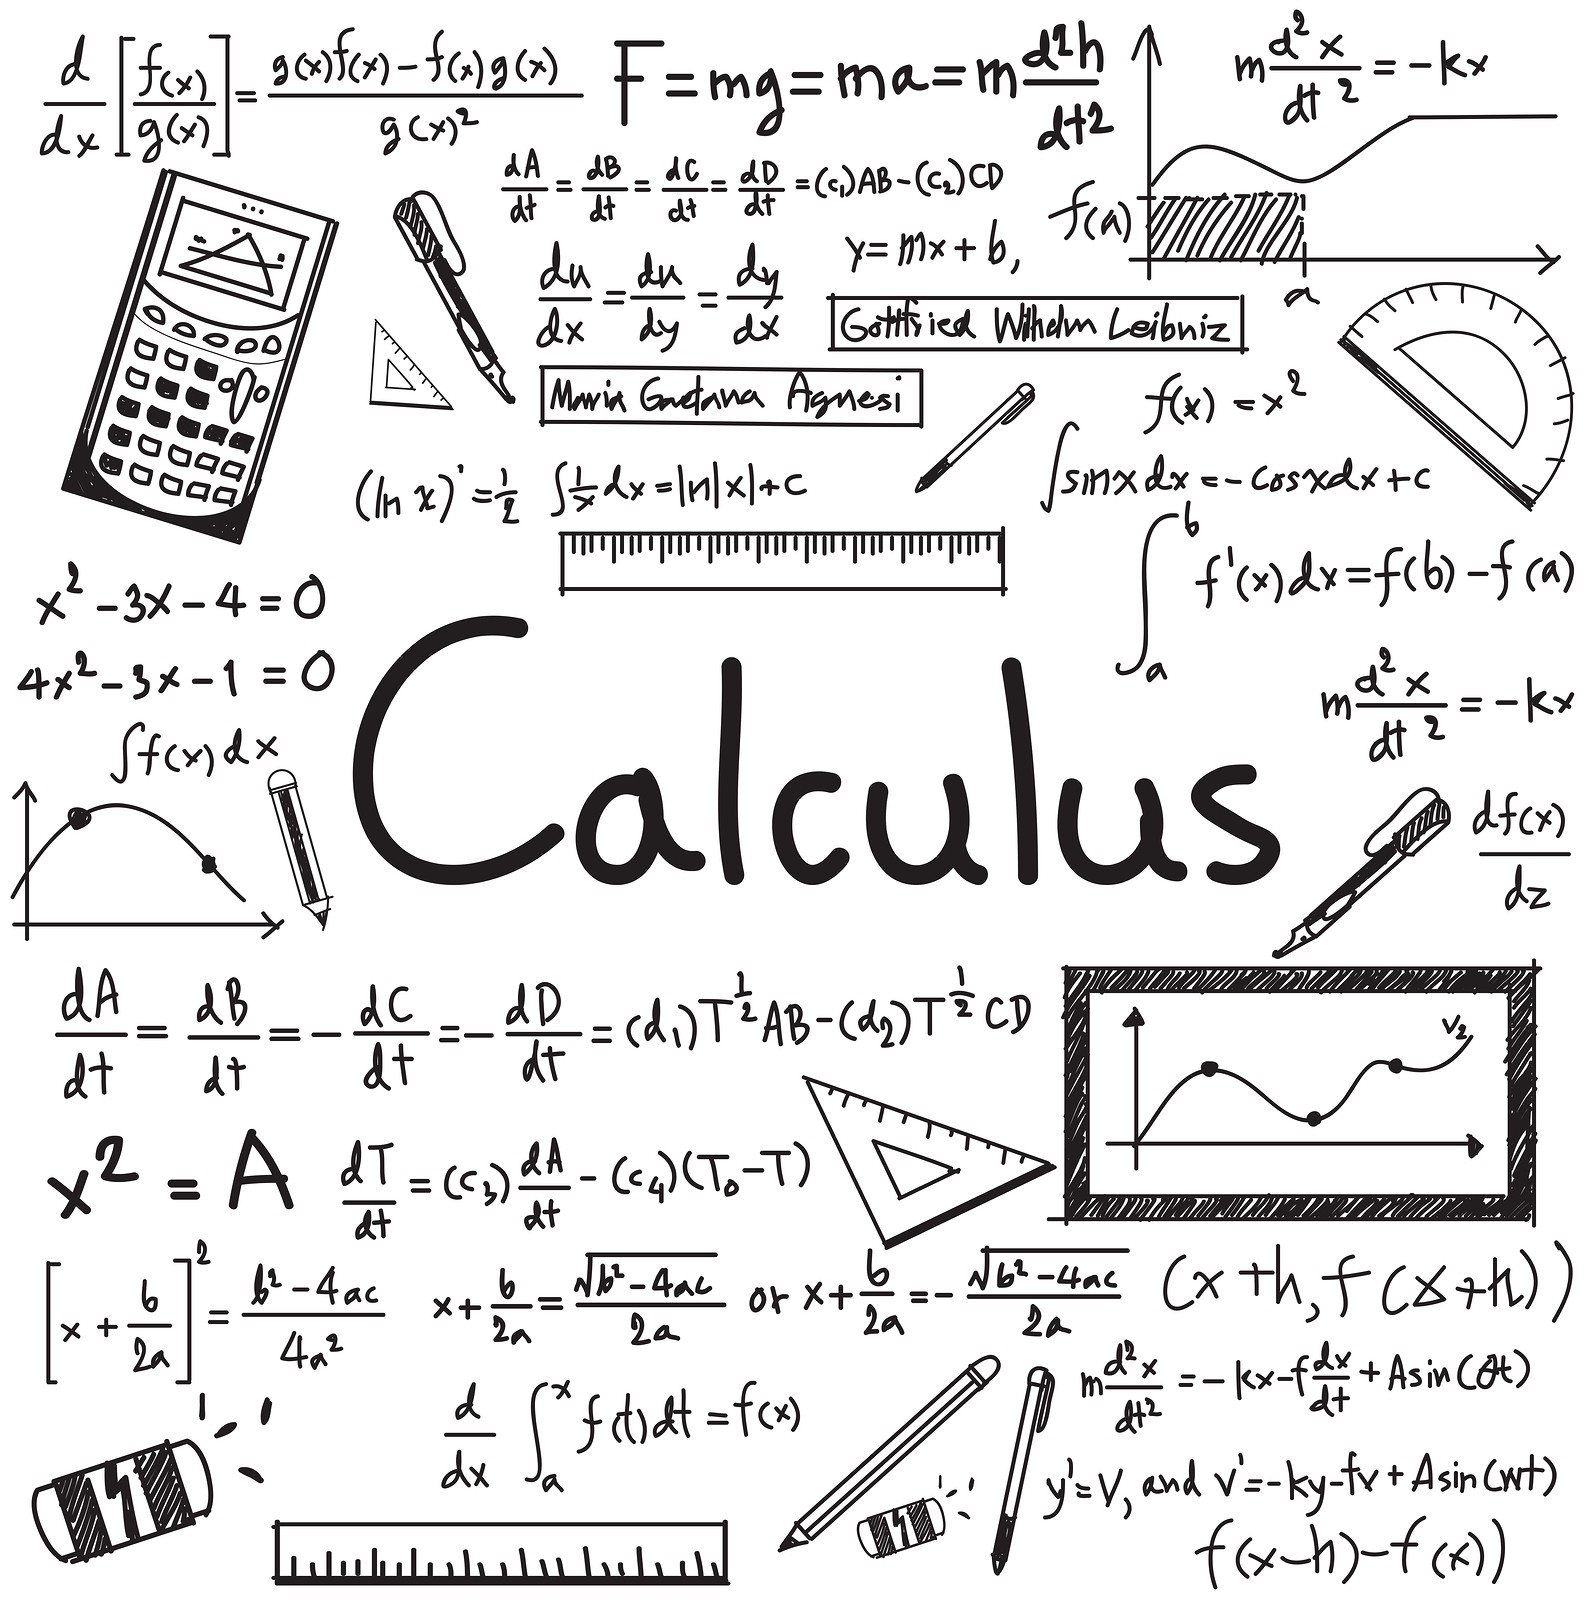 d/dx [f(x)/g(x)] = g(x)f(x) - f(x)g(x) / g(x)²
F = mg = ma = m d²h/dt²
m d²x/dt² = -kx
dA/dt = dB/dt = dC/dt = dD/dt = (c₁)AB-(c₂)CD
y = mx + b,
f(a)
a
du/dx = du/dy = dy/dx
Gottfried Wilhelm Leibniz
Maria Gaetana Agnesi
f(x) = x²
(ln x)' = 1/2
∫ 1/x dx = ln|x| + c
∫ sinx dx = - cosxdx + c
∫ₐᵇ f'(x) dx = f(b) - f(a)
x² - 3x - 4 = 0
4x² - 3x - 1 = 0
m d²x/dt² = -kx
∫ f(x) dx
Calculus
df(x)/dz
dA/dt = dB/dt = - dC/dt = - dD/dt = (d₁)T^½ AB - (d₂)T^½ CD
V₂
x² = A
dT/dt = (c₃) dA/dt - (c₄)(T₀ - T)
[x + b/2a]² = b² - 4ac / 4a²
x + b/2a = √(b² - 4ac) / 2a or x + b/2a = - √(b² - 4ac) / 2a
(x + h, f(x + h))
m d²x/dt² = - kx - f dx/dt + A sin( t)
d/dx ∫ₐˣ f(t) dt = f(x)
y' = V, and v' = - ky - fv + A sin(wt)
f(x - h) - f(x))